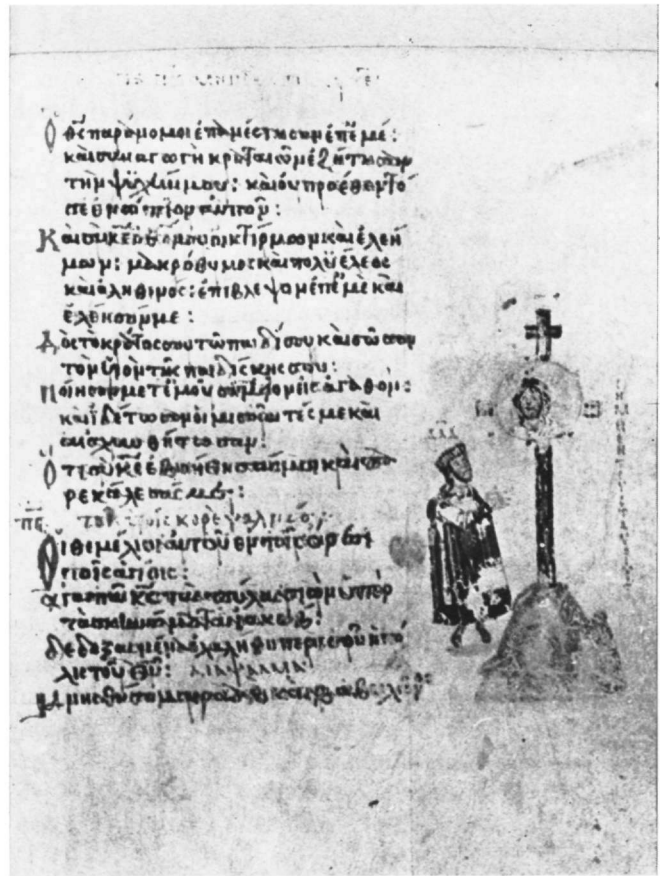 Ὁ θς παράνομοι ἐπανέστησαν ἐπ ἐμε:
και συναγωγη κραταιῶν ἐζήτησαν
την ψυχήν μου: και ου προέθεντό
σε ενώπιον αυτῶν:
Και συ κε ὁ θς μου οικτίρμων και ἐλεή
μων: μακρόθυμος και πολυέλεος
και αληθινός: ἐπίβλεψον ἐπ ἐμε και
ἐλέησόν με:
Δος το κράτος σου τῶ παιδί σου και σῶσον
τον υἱον της παιδίσκης σου:
Ποίησον μετ ἐμου σημεῖον εις ἀγαθον:
και ἰδέτωσαν οι μισοῦντές με και
αισχυνθήτωσαν:
Ὅτι συ κε ἐβοήθησάς μοι και πα
ρεκάλεσάς με:
τοῖς κορε ψαλμός
Οἱ θεμέλιοι αυτοῦ εν τοις ορεσι
τοις αγίοις:
ἀγαπᾶ κς τας πύλας σιων ὑπερ
τα σκηνώματα ιακωβ:
δεδοξασμένα ελαλήθη περι σου η πό
λις τοῦ θυ: διαψαλμα
Μνησθήσομαι ραὰβ και βαβυλῶνος